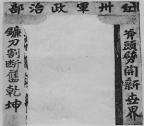 紅卅軍政治部
斧頭劈開新世界
鐮刀割断舊乾坤